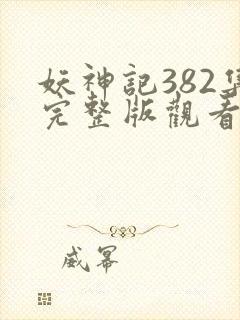 妖神記382集
完整版觀看
威幂